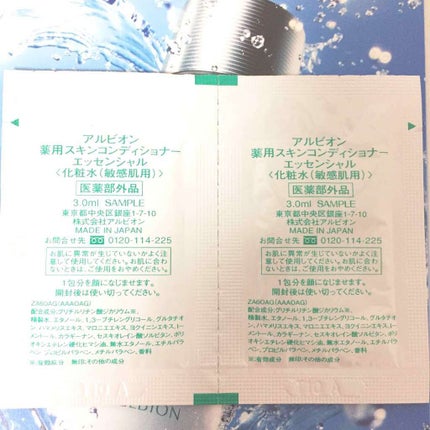 アルビオン
薬用スキンコンディショナー
エッセンシャル
〈化粧水(敏感肌用)〉
医薬部外品
3.0ml SAMPLE
東京都中央区銀座1-7-10
株式会社アルビオン
MADE IN JAPAN
お問合せ先 0120-114-225
お肌に異常が生じていないかよく注
意して使用してください。お肌に合わ
ないときは、ご使用をおやめください。
1包分を顔になじませます。
開封後は使い切ってください。
ZA60AG(AAAGAG)
配合成分:グリチルリチン酸ジカリウム※、
精製水、エタノール、1,3-ブチレングリコール、グルタチオ
ン、ハマメリスエキス、マロニエエキス、ヨクイニンエキス、ℓ-メ
ントール、カラギーナン、セスキオレイン酸ソルビタン、ポリ
オキシエチレン硬化ヒマシ油、無水エタノール、エチルパラ
ベン、プロピルパラベン、メチルパラベン、香料
※:有効成分 無印:その他の成分
アルビオン
薬用スキンコンディショナー
エッセンシャル
〈化粧水(敏感肌用)〉
医薬部外品
3.0ml SAMPLE
東京都中央区銀座1-7-10
株式会社アルビオン
MADE IN JAPAN
お問合せ先 0120-114-225
お肌に異常が生じていないかよく注
意して使用してください。お肌に合わ
ないときは、ご使用をおやめください。
1包分を顔になじませます。
開封後は使い切ってください。
ZA60AG(AAAGAG)
配合成分:グリチルリチン酸ジカリウム※、
精製水、エタノール、1,3-ブチレングリコール、グルタチオ
ン、ハマメリスエキス、マロニエエキス、ヨクイニンエキス、ℓ-メ
ントール、カラギーナン、セスキオレイン酸ソルビタン、ポリ
オキシエチレン硬化ヒマシ油、無水エタノール、エチルパラ
ベン、プロピルパラベン、メチルパラベン、香料
※:有効成分 無印:その他の成分